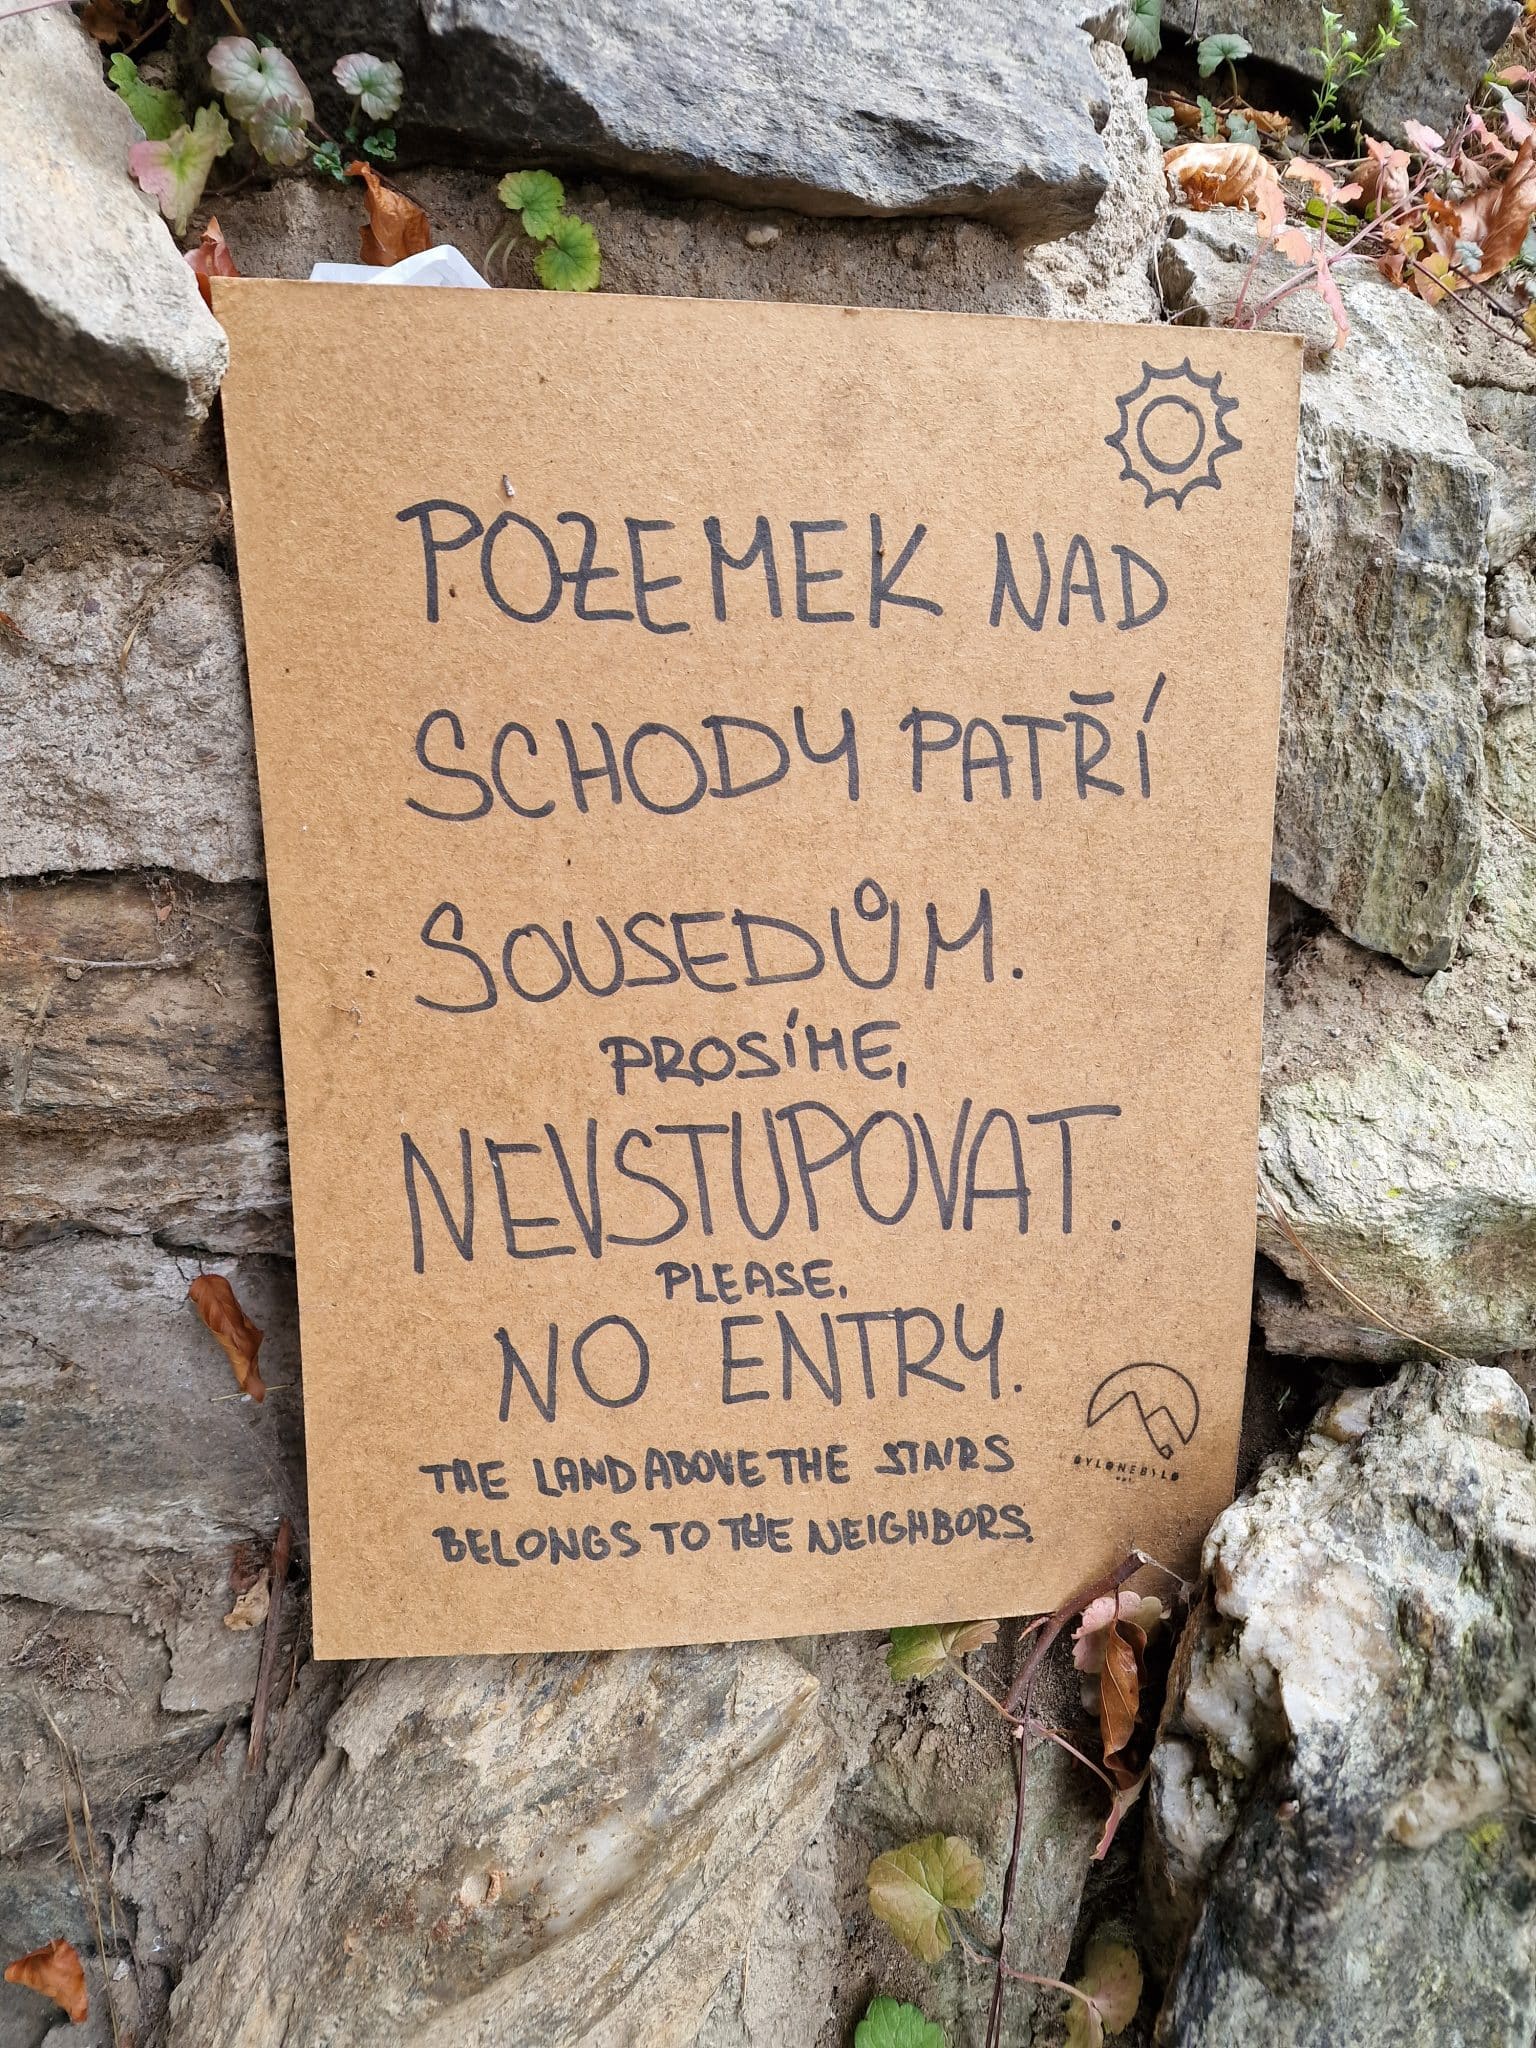 POZEMEK NAD
SCHODY PATŘÍ
SOUSEDŮM.
PROSÍME,
NEVSTUPOVAT.
PLEASE.
NO ENTRY.
THE LAND ABOVE THE STAIRS
BELONGS TO THE NEIGHBORS.
BYLONEBYLO